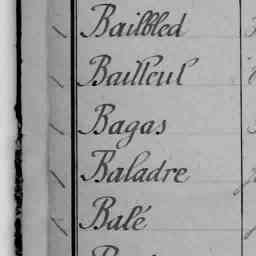 Bailbled
Bailleul
Bagas
Baladre
Balé